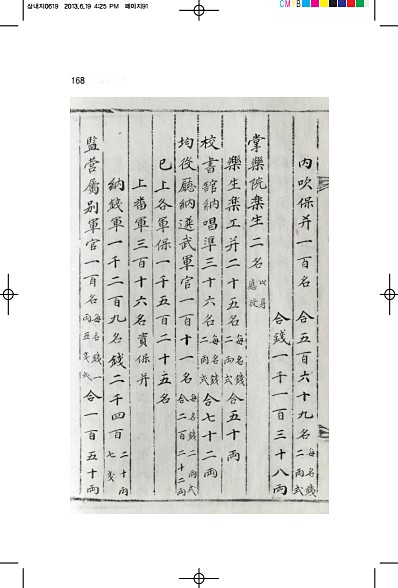 삼내지0619 2013.6.19 4:25 PM 페이지91
CMYB
168
內吹保并一百名 合五百六十九名 每名錢二兩式
合錢一千一百三十八兩
掌樂院樂生二名
樂生樂工并二十五名 每名錢二兩式 合五十兩
校書館納唱準三十六名 每名錢二兩式 合七十二兩
均役廳納選武軍官一百十一名 每名錢二兩式 合二百二十二兩
已上各軍保一千五百二十五名
上番軍三百十六名資保并
納錢軍一千二百九名錢二千四百二十兩七戔
監營屬別軍官一百名 每名錢一兩五戔式 合一百五十兩